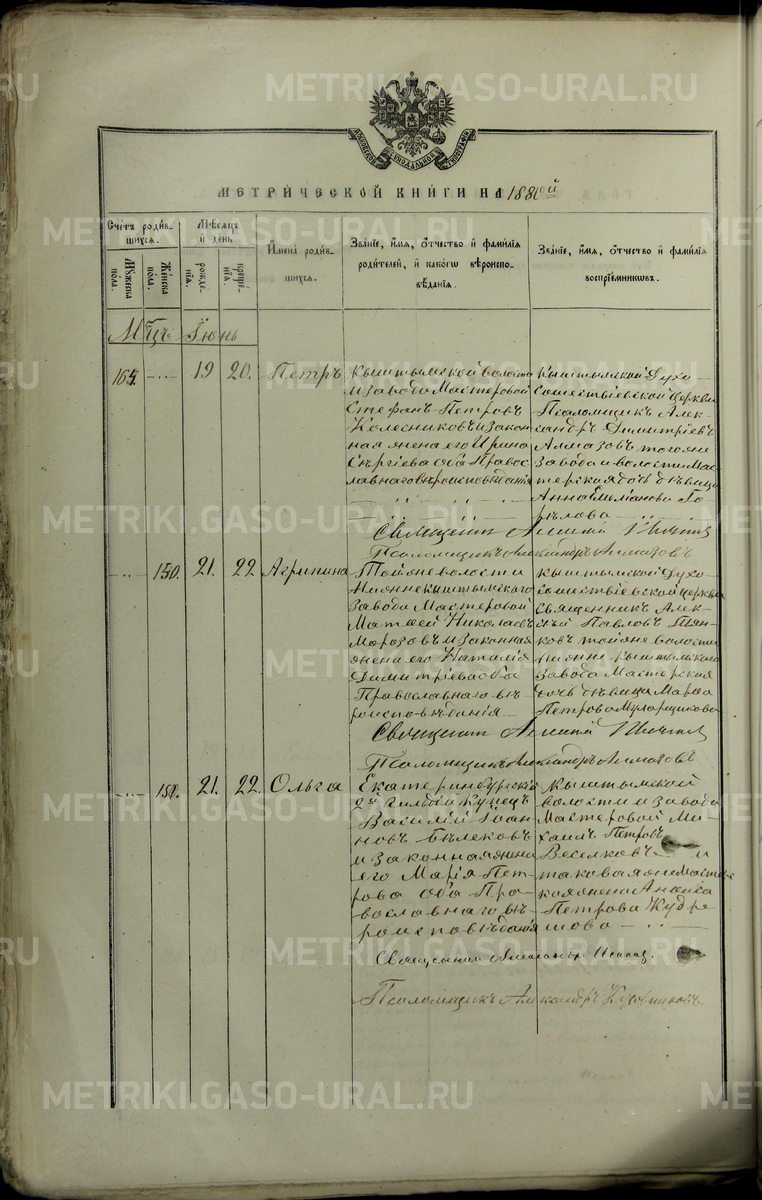 METRIKI.GASO-URAL.RU
МЕТРИ́ЧЕСКОЙ КНИ́ГИ НА 1880й
Сче́тъ роди́в-
шихся.
Му́жеска
по́ла.
Же́нска
по́ла.
Мѣ́сяцъ
и҆ день
рожде-
нїѧ.
креще-
нїѧ
И҆мена̀ роди́в-
шихся.
Зва́нїе, и҆́мя, ѻ҆́тчество и҆ фами́лїя
роди́телей, и҆ како́гѡ вѣроиспо-
вѣ́данїя.
Зва́нїе, и҆́мя, ѻ҆́тчество и҆ фами́лїя
воспрїе́мниковъ.
Мцъ Іюнь
164.
19
20.
Петръ
Кыштымской волости
и завода Мастеровой
Стефанъ Петровъ
Колесниковъ и закон
ная жена его Ирина
Сергіева оба Правос
лавнаго вѣроисповѣданія
Кыштымской Духо-
сошествіевской церкви
Псаломщикъ Алек-
сандръ Димитріевъ
Алмазовъ тогоже
завода и волости Мас
терская дочь дѣвица
Анна Емеліанова Го
рѣлова
Священникъ
Псаломщикъ Александръ Алмазовъ
150.
21.
22
Агрипина
Тойже волости
Нижнекыштымского
завода Мастеровой
Матѳей Николаевъ
Морозовъ и законная
жена его Наталія
Димитріева оба
Православнаго вѣ-
роисповѣданія
Кыштымской Духо-
сошествіевской церкви
священникъ Алек-
сѣй Павловъ Пян-
ковъ тойже волости
Нижне Кыштымского
завода Мастерская
дочь дѣвица Марѳа
Петрова Муларщикова
Священникъ
Псаломщикъ Александръ Алмазовъ
151.
21.
22.
Ольга
Екатеринбурскій
2й гильдіи Купецъ
Василій Іоан
новъ Бѣлековъ
и законная жена
его Марія Пет
рова оба Пра-
вославнаго вѣ-
роисповѣданія
Кыштымской
волости и завода
Мастеровой Ми-
хаилъ Петровъ
Веселковъ и
таковая же мастерс
кая жена Анѳиса
Петрова Кудре
шова
Священникъ
Псаломщикъ Александръ